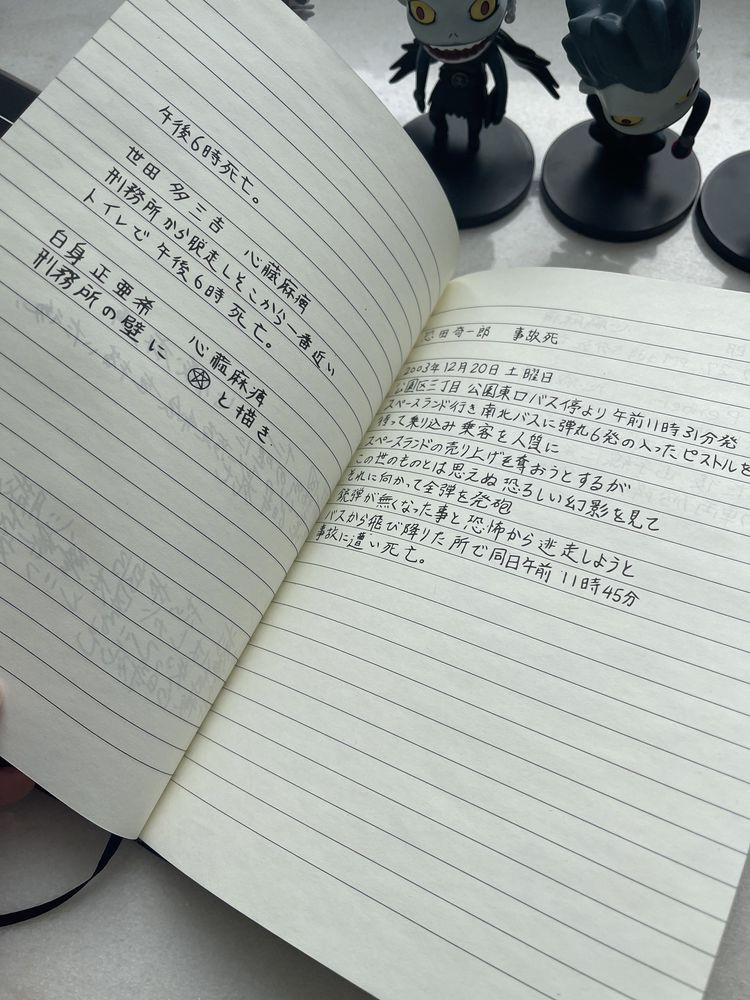 午後6時死亡。
世田 多三吉 心臓麻痺
刑務所から脱走しそこから一番近い
トイレで 午後6時 死亡。
白身 正亜希 心臓麻痺
刑務所の壁に と描き
田奇一郎 事故死
2003年12月20日 土曜日
公園区三丁目 公園東口バス停より 午前11時31分発
スペースランド行き 南北バスに弾丸6発の入ったピストルを
持って乗り込み 乗客を人質に
スペースランドの売り上げを奪おうとするが
この世のものとは思えぬ恐ろしい幻影を見て
それに向かって全弾を発砲
残弾が無くなった事と恐怖から 逃走しようと
バスから飛び降りた所で同日午前 11時45分
事故に遭い死亡。